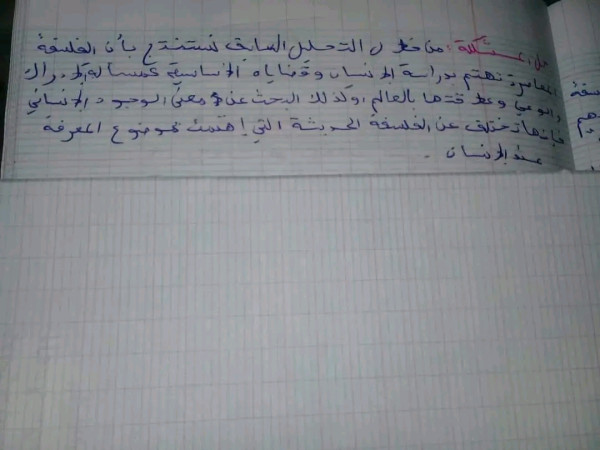 حل المشكلة: من خلال التحليل السابق نستنتج بأن الفلسفة
المعاصرة تهتم بدراسة الإنسان وقضاياه الإنسانية كمسألة الإدراك
والوعي وعلاقتها بالعالم، وكذلك البحث عن معنى الوجود الإنساني
فإنها تختلف عن الفلسفة الحديثة التي إهتمت بموضوع المعرفة
عند الإنسان.